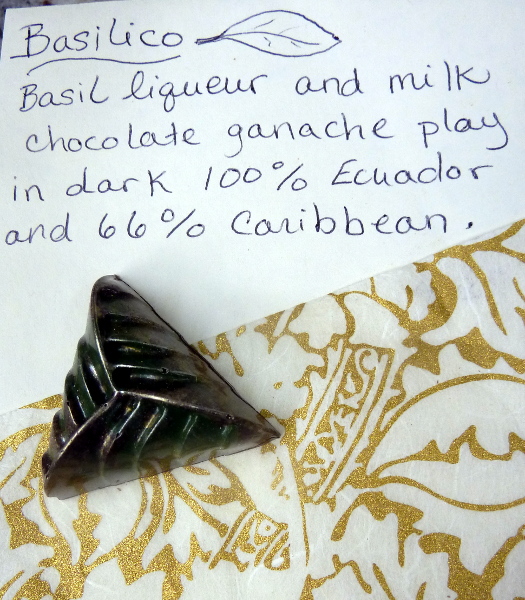 Basilico
Basil liqueur and milk
chocolate ganache play
in dark 100% Ecuador
and 66% Caribbean.